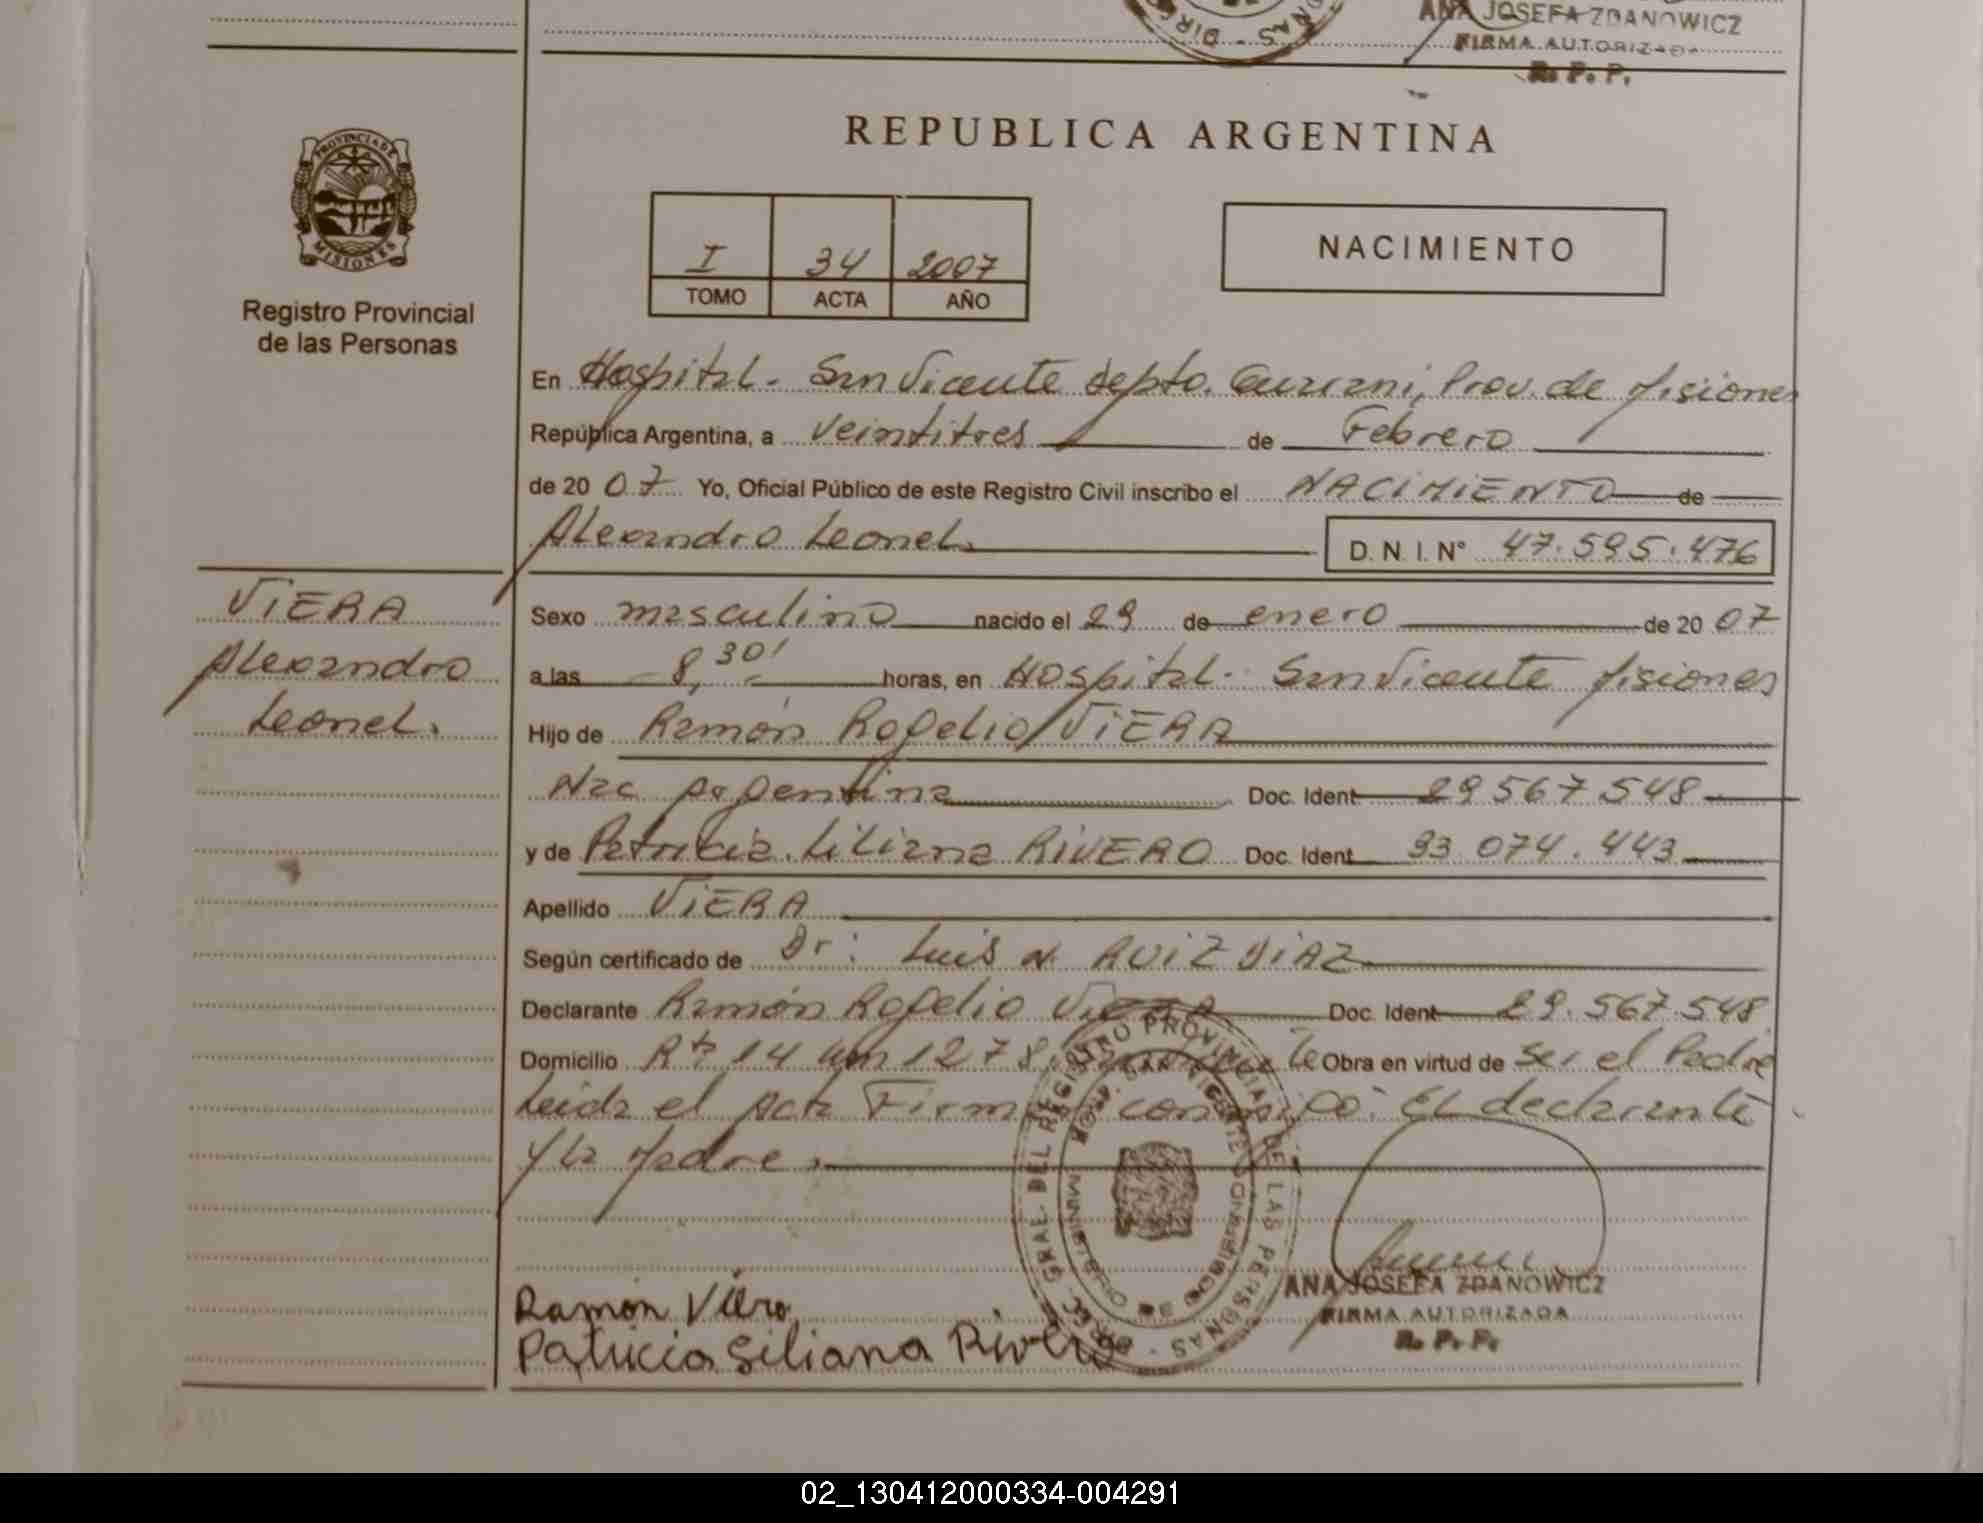 ANA JOSEFA ZDANOWICZ
FIRMA AUTORIZADA
R. P. P.
REPUBLICA ARGENTINA
PROVINCIA DE MISIONES
Registro Provincial
de las Personas
I 34 2007
TOMO ACTA AÑO
NACIMIENTO
En Hospital - San Vicente depto. Guarani, Prov. de Misiones
República Argentina, a veintitres de Febrero
de 2007 Yo, Oficial Público de este Registro Civil inscribo el NACIMIENTO de
Alexandro Leonel. D. N. I. N° 47.595.476
VIERA
Alexandro
Leonel.
Sexo masculino nacido el 29 de enero de 2007
a las 8,30' horas, en Hospital - San Vicente Misiones
Hijo de Ramón Rogelio VIERA
Nac Argentina Doc. Ident 29 567 548
y de Patricia Liliana RIVERO Doc. Ident 93 074.443
Apellido VIERA
Según certificado de Dr: Luis N. RUIZ DIAZ
Declarante Ramón Rogelio Viera Doc. Ident 29.567.548
Domicilio Rta 14 km 1278 San Vicente Obra en virtud de ser el Padre
Leida el Acta Firman conmigo: El declarante
y la Madre.
REGISTRO PROVINCIAL DE LAS PERSONAS
MINISTERIO DE GOBIERNO
Ramón Viera
Patricia Liliana Rivero
ANA JOSEFA ZDANOWICZ
FIRMA AUTORIZADA
R. P. P.
02_130412000334-004291